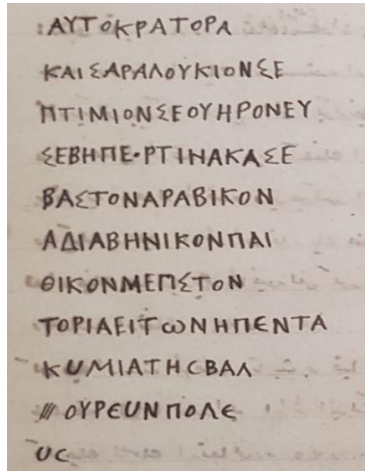 ΑΥΤΟΚΡΑΤΟΡΑ
ΚΑΙΣΑΡΑΛΟΥΚΙΟΝΣΕ
ΠΤΙΜΙΟΝΣΕΟΥΗΡΟΝΕΥ
ΣΕΒΗΠΕ·ΡΤΙΝΑΚΑΣΕ
ΒΑΣΤΟΝΑΡΑΒΙΚΟΝ
ΑΔΙΑΒΗΝΙΚΟΝΠΑΙ
ΘΙΚΟΝΜΕΠΣΤΟΝ
ΤΟΡΙΑΕΙΤωΝΗΠΕΝΤΑ
ΚUΜΙΑΤΗCΒΑΛ
/// ΟΥΡΕUΝΠΟΛΕ
UC